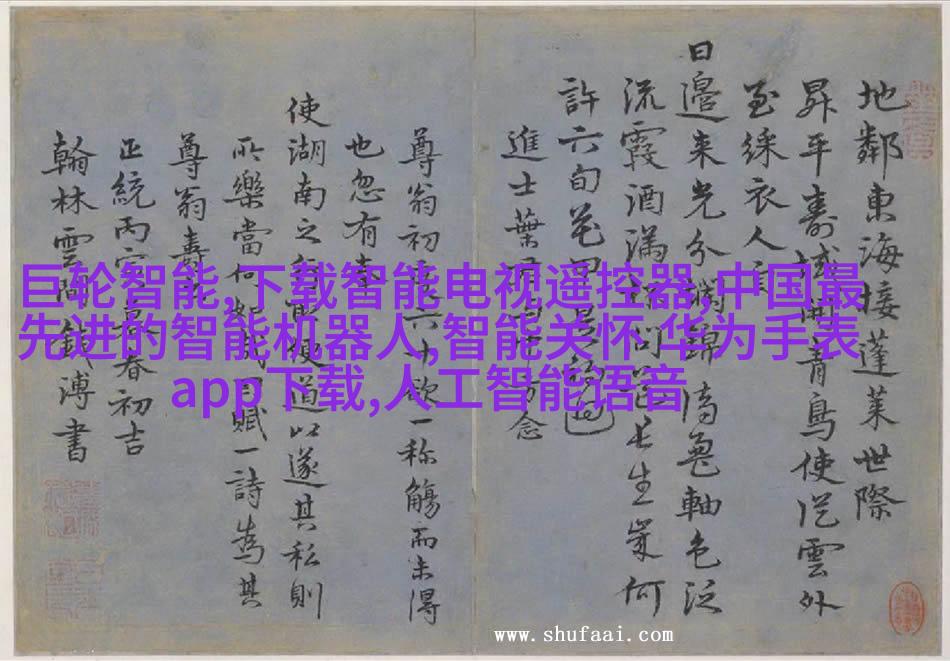 地鄰東海接蓬萊世際
昇平壽域開青鳥使從雲外
至綵衣人
日邉来光分錦鸞軸色泛
流霞酒滿問長生歲何
許六旬花甲
進士葉念
尊翁初六欲一称觴而未得
也忽有
使湖南之便道以遂其私則
所樂當何如賦一詩為其
尊翁壽
正統丙寅春初吉
翰林雲間錢溥書
巨轮智能,下载智能电视遥控器,中国最
先进的智能机器人,智能关怀 华为手表
app下载,人工智能语音
www.shufaai.com